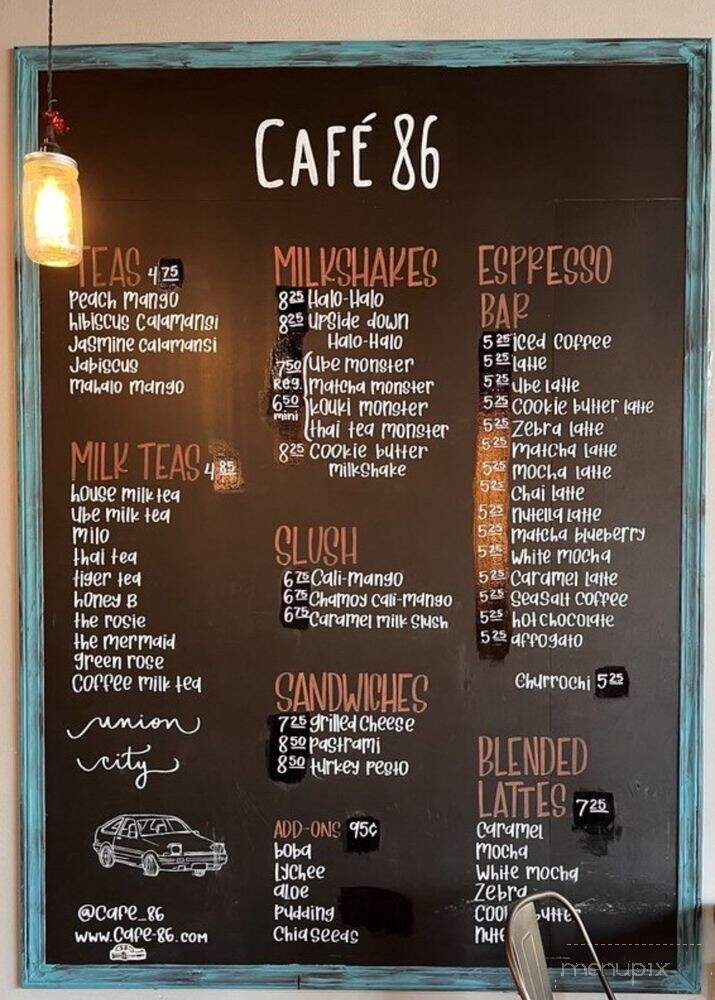 CAFÉ 86
TEAS 4 75
Peach mango
hibiscus Calamansi
Jasmine calamansi
Jabiscus
mahalo mango
MILK TEAS 4 85
house milk tea
ube milk tea
milo
thai tea
tiger tea
honey B
the rosie
the mermaid
green rose
Coffee milk tea
union
city
@Cafe_86
www.Cafe-86.com
MILKSHAKES
8 25 Halo-Halo
8 25 upside down
Halo-Halo
7 50 ube monster
Reg. matcha monster
6 50 kouki monster
mini thai tea monster
8 25 Cookie butter
milkshake
SLUSH
6 75 Cali-mango
6 75 Chamoy Cali-mango
6 75 Caramel milk slush
SANDWICHES
7 25 grilled cheese
8 50 pastrami
8 50 turkey pesto
ADD-ONS 95¢
boba
Lychee
aloe
Pudding
Chia seeds
ESPRESSO
BAR
5 25 iced coffee
5 25 latte
5 25 ube latte
5 25 Cookie butter latte
5 25 Zebra latte
5 25 matcha latte
5 25 mocha latte
5 25 Chai latte
5 25 nutella latte
5 25 matcha blueberry
5 25 white mocha
5 25 Caramel latte
5 25 Seasalt Coffee
5 25 hot chocolate
5 25 affogato
Churrochi 5 25
BLENDED
LATTES 7 25
Caramel
Mocha
White mocha
Zebra
menupix